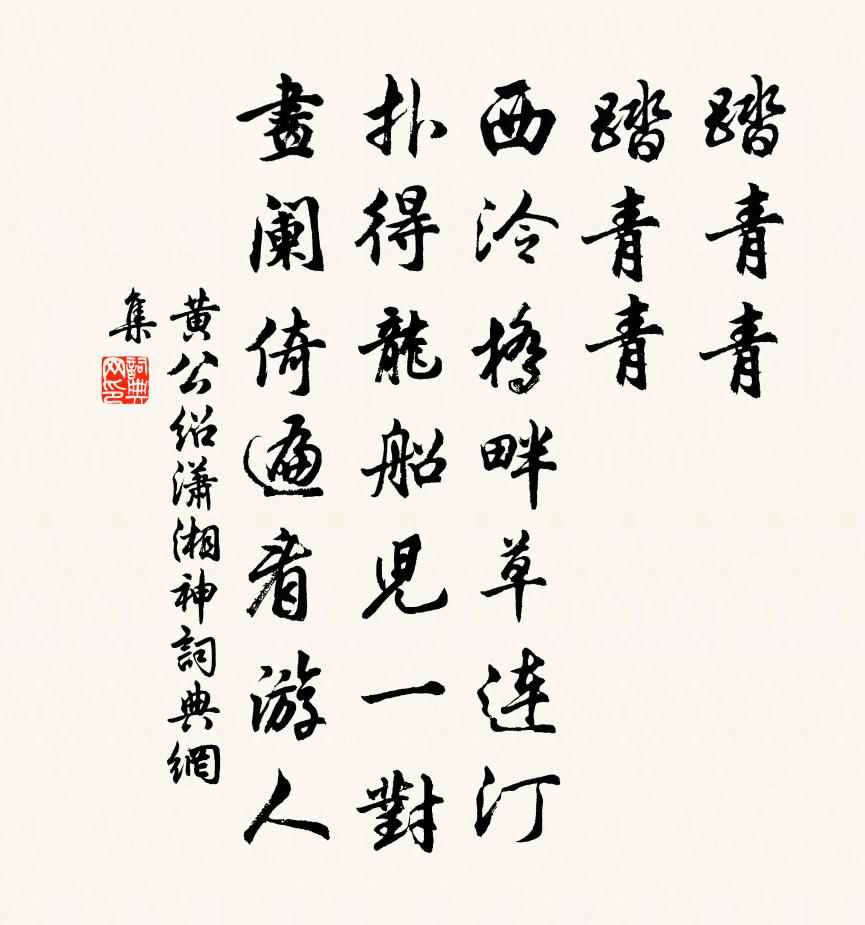 踏青青
踏青青
西泠橋畔草連汀
扑得龍船兒一對
畫阑倚遍看游人
黄公绍瀟湘神詞典網
集
詞典
网印